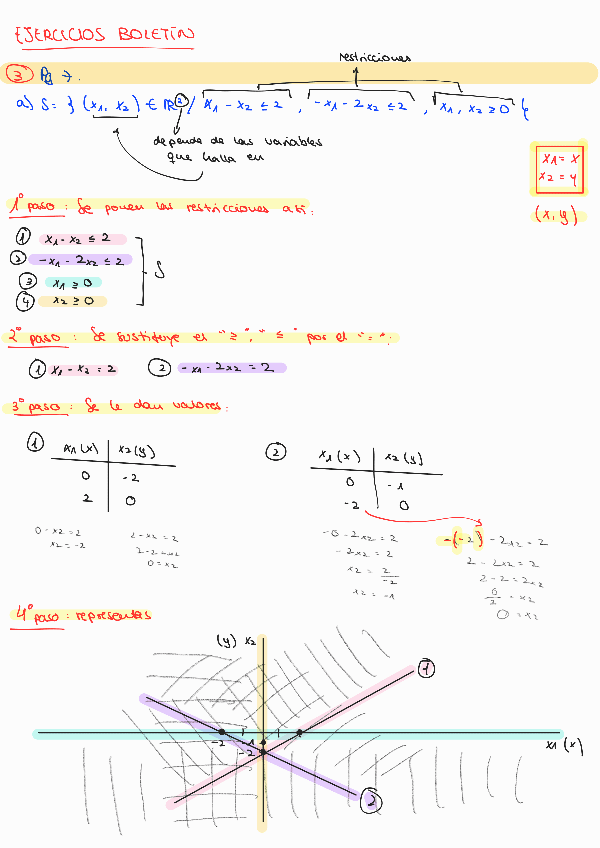 EJERCICIOS BOLETÍN
restricciones
③ Pg 7.
a) S = { (x1, x2) ∈ ℝ² / x1 - x2 ≤ 2 , -x1 - 2x2 ≤ 2 , x1, x2 ≥ 0 }
depende de las variables
que halla en
x1 = x
x2 = y
(x, y)
1º paso : Se ponen las restricciones así:
① x1 - x2 ≤ 2
② -x1 - 2x2 ≤ 2
③ x1 ≥ 0
④ x2 ≥ 0
S
2º paso : Se sustituye el "≥", "≤" por el "=":
① x1 - x2 = 2 ② -x1 - 2x2 = 2
3º paso : Se le dan valores:
①
x1 (x) x2 (y)
0 -2
2 0
0 - x2 = 2
x2 = -2
2 - x2 = 2
2 - 2 = x2
0 = x2
②
x1 (x) x2 (y)
0 -1
-2 0
-0 - 2x2 = 2
-2x2 = 2
x2 = 2/-2
x2 = -1
-(-2) - 2x2 = 2
2 - 2x2 = 2
2 - 2 = 2x2
0/2 = x2
0 = x2
4º paso : representas
(y) x2
①
-2 -1 1 2
-2
x1 (x)
②